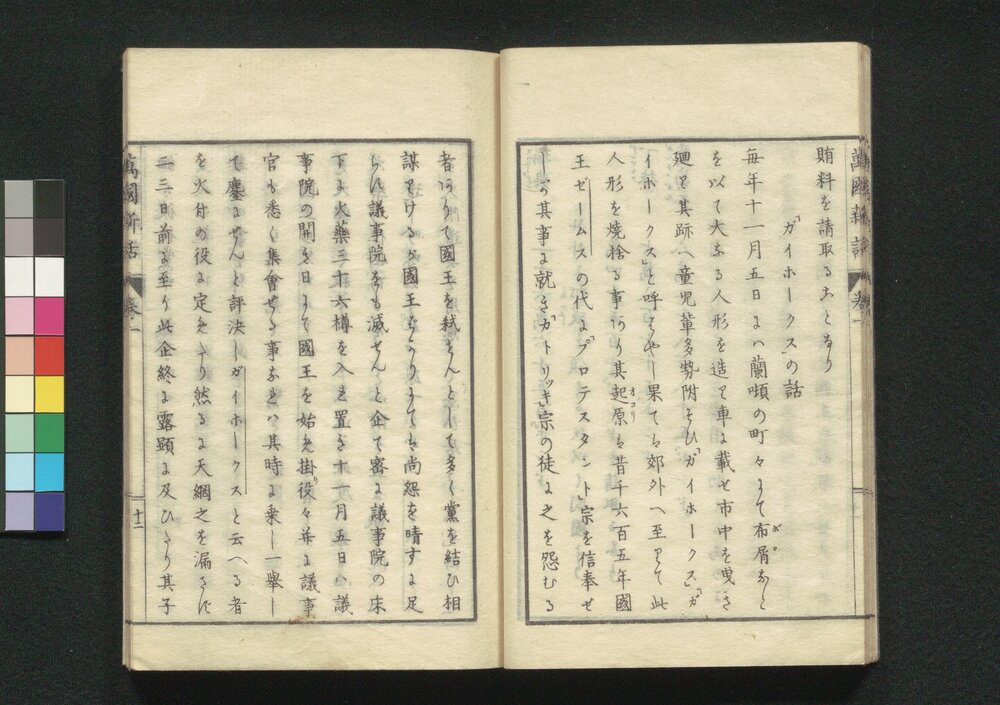 賄料を請取ることなり
「ガイホークス」の話
毎年十一月五日にハ蘭噸の町々にて布屑ボロなと
を以て大なる人形を造り車に載せ市中を曳き
廻り其跡へ童児輩多勢附そひ「ガイホークス」「ガ
イホークス」と呼はやし果てハ郊外へ至りて此
人形を焼捨る事あり其起原おこりハ昔千六百五年國
王ゼームスの代に「プロテスタント」宗を信奉せ
しか其事に就き「カトリッキ」宗の徒に之を怨むる
萬國新話
巻一
者ありて國王を弑せんとして多く黨を結ひ相
謀りけるが國王はかりにてハ尚怨を晴すに足
らす議事院をも滅せんと企て密に議事院の床
下に火藥三十六樽を入れ置き十一月五日ハ議
事院の開き日にて國王を始め掛り役々并に議事
官も悉く集會する事なれハ其時に乗し一擧し
て鏖にせんと評決しガイホークスと云へる者
を火付の役に定めたり然るに天網之を漏さす
二三日前に至り此企終に露顕に及ひたり其子
萬國新話
巻一
十二